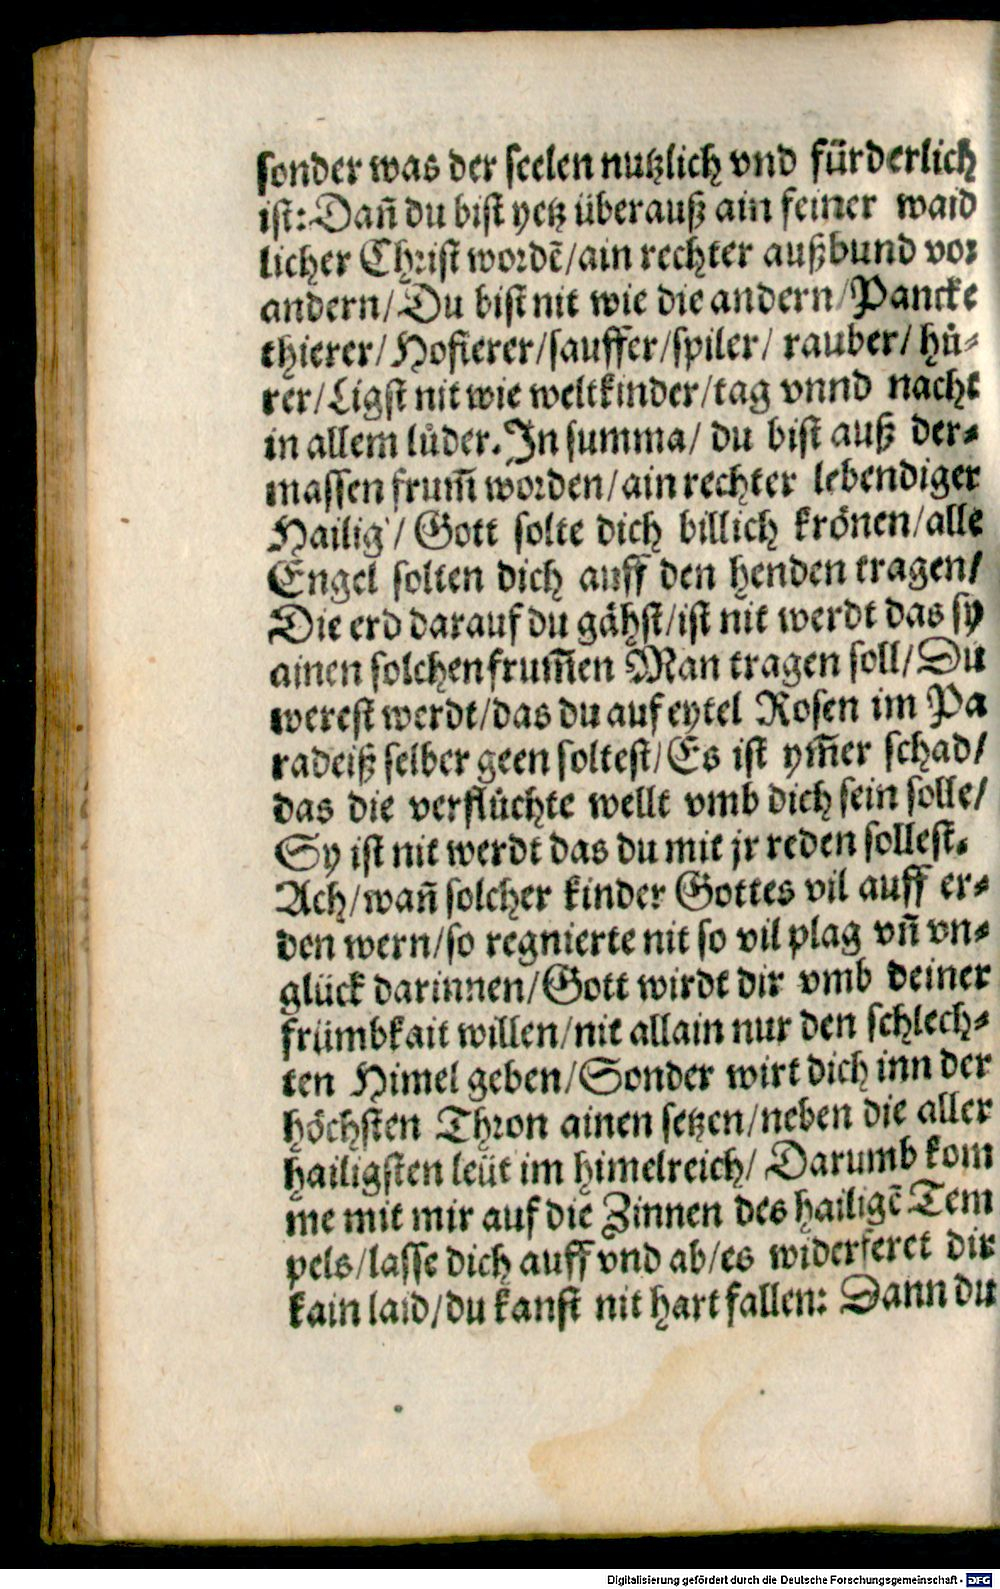 sonder was der seelen nutzlich vnd fürderlich
ist: Dañ du bist yetz überauß ain feiner waid
licher Christ wordẽ/ain rechter außbund vor
andern/Du bist nit wie die andern/Pancke
thierer/Hofierer/sauffer/spiler/rauber/hů-
rer/Ligst nit wie weltkinder/tag vnnd nacht
in allem lůder. In summa/ du bist auß der-
massen frum̃ worden/ain rechter lebendiger
Hailig/Gott solte dich billich krönen/alle
Engel solten dich auff den henden tragen/
Die erd darauf du gähst/ist nit werdt das sy
ainen solchen frum̃en Man tragen soll/Du
werest werdt/das du auf eytel Rosen im Pa
radeiß selber geen soltest/Es ist ym̃er schad/
das die verflůchte wellt vmb dich sein solle/
Sy ist nit werdt das du mit jr reden sollest.
Ach/wañ solcher kinder Gottes vil auff er-
den wern/so regnierte nit so vil plag vñ vn-
glück darinnen/Gott wirdt dir vmb deiner
frümbkait willen/nit allain nur den schlech-
ten Himel geben/Sonder wirt dich inn der
höchsten Thron ainen setzen/neben die aller
hailigsten leüt im himelreich/Darumb kom
me mit mir auf die Zinnen des hailigẽ Tem
pels/lasse dich auff vnd ab/es widerferet dir
kain laid/du kanst nit hart fallen: Dann du
Digitalisierung gefördert durch die Deutsche Forschungsgemeinschaft - DFG